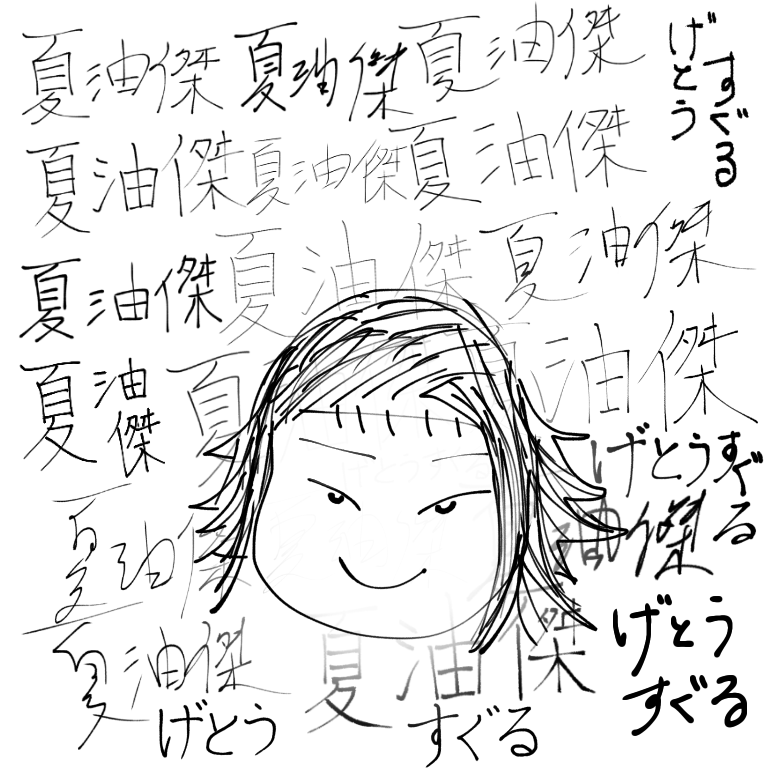 夏油傑 夏油傑 夏油傑
げとう
すぐる
夏油傑 夏油傑 夏油傑
夏油傑 夏油傑 夏油傑
夏油傑 夏 油傑
げとうすぐる
げとうすぐる
夏油傑 油傑
夏油傑 夏油傑
げとう すぐる
げとう
すぐる